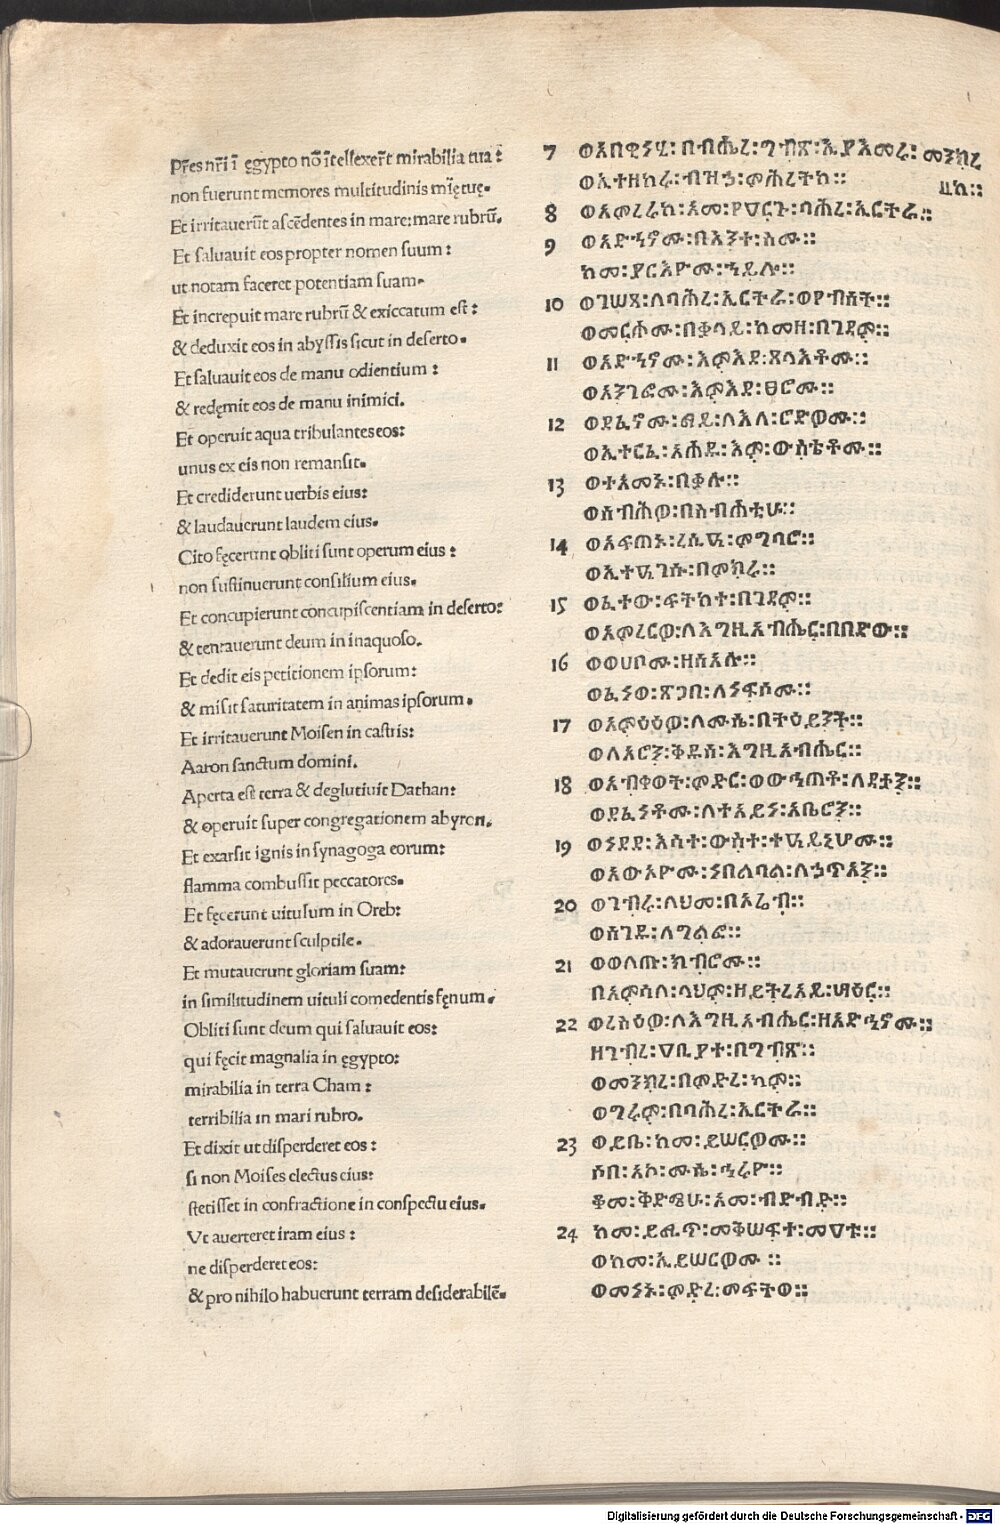 Pr̃es nr̃i ĩ ęgypto nõ ĩtellexer̃t mirabilia tua:
non fuerunt memores multitudinis mĩę tuę.
Et irritauerũt ascẽdentes in mare: mare rubrũ.
Et saluauit eos propter nomen suum:
ut notam faceret potentiam suam.
Et increpuit mare rubrũ & exiccatum est:
& deduxit eos in abyssis sicut in deserto.
Et saluauit eos de manu odientium:
& redęmit eos de manu inimici.
Et operuit aqua tribulantes eos:
unus ex eis non remansit.
Et crediderunt uerbis eius:
& laudauerunt laudem eius.
Cito fęcerunt obliti sunt operum eius:
non sustinuerunt consilium eius.
Et concupierunt concupiscentiam in deserto:
& tentauerunt deum in inaquoso.
Et dedit eis petitionem ipsorum:
& misit saturitatem in animas ipsorum.
Et irritauerunt Moisen in castris:
Aaron sanctum domini.
Aperta est terra & deglutiuit Dathan:
& operuit super congregationem abyron.
Et exarsit ignis in synagoga eorum:
flamma combussit peccatores.
Et fęcerunt uitulum in Oreb:
& adorauerunt sculptile.
Et mutauerunt gloriam suam:
in similitudinem uituli comedentis fęnum.
Obliti sunt deum qui saluauit eos:
qui fęcit magnalia in ęgypto:
mirabilia in terra Cham:
terribilia in mari rubro.
Et dixit ut disperderet eos:
si non Moises electus eius:
stetisset in confractione in conspectu eius.
Vt auerteret iram eius:
ne disperderet eos:
& pro nihilo habuerunt terram desiderabilẽ.
7 ወአበዊነሂ፡ በብሔረ፡ግብጽ፡ኢያእመሩ፡ መንክረ
ወኢተዘከሩ፡ብዝኃ፡ምሕረትከ። ዚከ።
8 ወአምረሩከ፡አመ፡የዐርጉ፡ባሕረ፡ኤርትራ።
9 ወአድኀኖሙ፡በእንተ፡ስሙ።
ከመ፡ያርእዮሙ፡ኀይሉ።
10 ወገሠጻ፡ለባሕረ፡ኤርትራ፡ወየብሰት።
ወመርሖሙ፡በቀላይ፡ከመዘ፡በገዳም።
11 ወአድኀኖሙ፡እምእደ፡ጸላእቶሙ።
ወአንገፎሙ፡እምእደ፡ፀሮሙ።
12 ወደፈኖሙ፡ማይ፡ለእለ፡ሮድዎሙ።
ወኢተርፈ፡አሐዱ፡እም፡ውስቴቶሙ።
13 ወተአመኑ፡በቃሉ።
ወሰብሕዎ፡በስብሐቲሁ።
14 ወአፍጠኑ፡ረሲዐ፡ምግባሮ።
ወኢተዐገሱ፡በምክሩ።
15 ወፈተው፡ፍትወተ፡በገዳም።
ወአምረርዎ፡ለእግዚአብሔር፡በበድው።
16 ወወሀቦሙ፡ዘሰአሉ።
ወፈነወ፡ጽጋበ፡ለነፍሶሙ።
17 ወአምዕዕዎ፡ለሙሴ፡በትዕይንት።
ወለአሮን፡ቅዱሰ፡እግዚአብሔር።
18 ወአብቀወት፡ምድር፡ወውኅጠቶ፡ለዳታን።
ወደፈነቶሙ፡ለተአይነ፡አቤሮን።
19 ወነደደ፡እሳት፡ውስተ፡ተዓይኒሆሙ።
ወአውዐዮሙ፡ነበልባል፡ለኃጥአን።
20 ወገብሩ፡ላህመ፡በኦሬብ።
ወሰገዱ፡ለግልፎ።
21 ወወለጡ፡ክብሮሙ።
በአምሳለ፡ላህም፡ዘይትረአይ፡ሣዕር።
22 ወረስዕዎ፡ለእግዚአብሔር፡ዘአድኀኖሙ።
ዘገብረ፡ዐቢያተ፡በግብጽ።
ወመንክረ፡በምድረ፡ካም።
ወግሩም፡በባሕረ፡ኤርትራ።
23 ወይቤ፡ከመ፡ይሠርዎሙ።
ሶበ፡አኮ፡ሙሴ፡ኅሩዮ።
ቆመ፡ቅድሜሁ፡አመ፡ብድብድ።
24 ከመ፡ይሚጥ፡መቅሠፍተ፡መዐቱ።
ወከመ፡ኢይሠርዎሙ ።
ወመነኑ፡ምድረ፡መፍትወ።
Digitalisierung gefördert durch die Deutsche Forschungsgemeinschaft - DFG